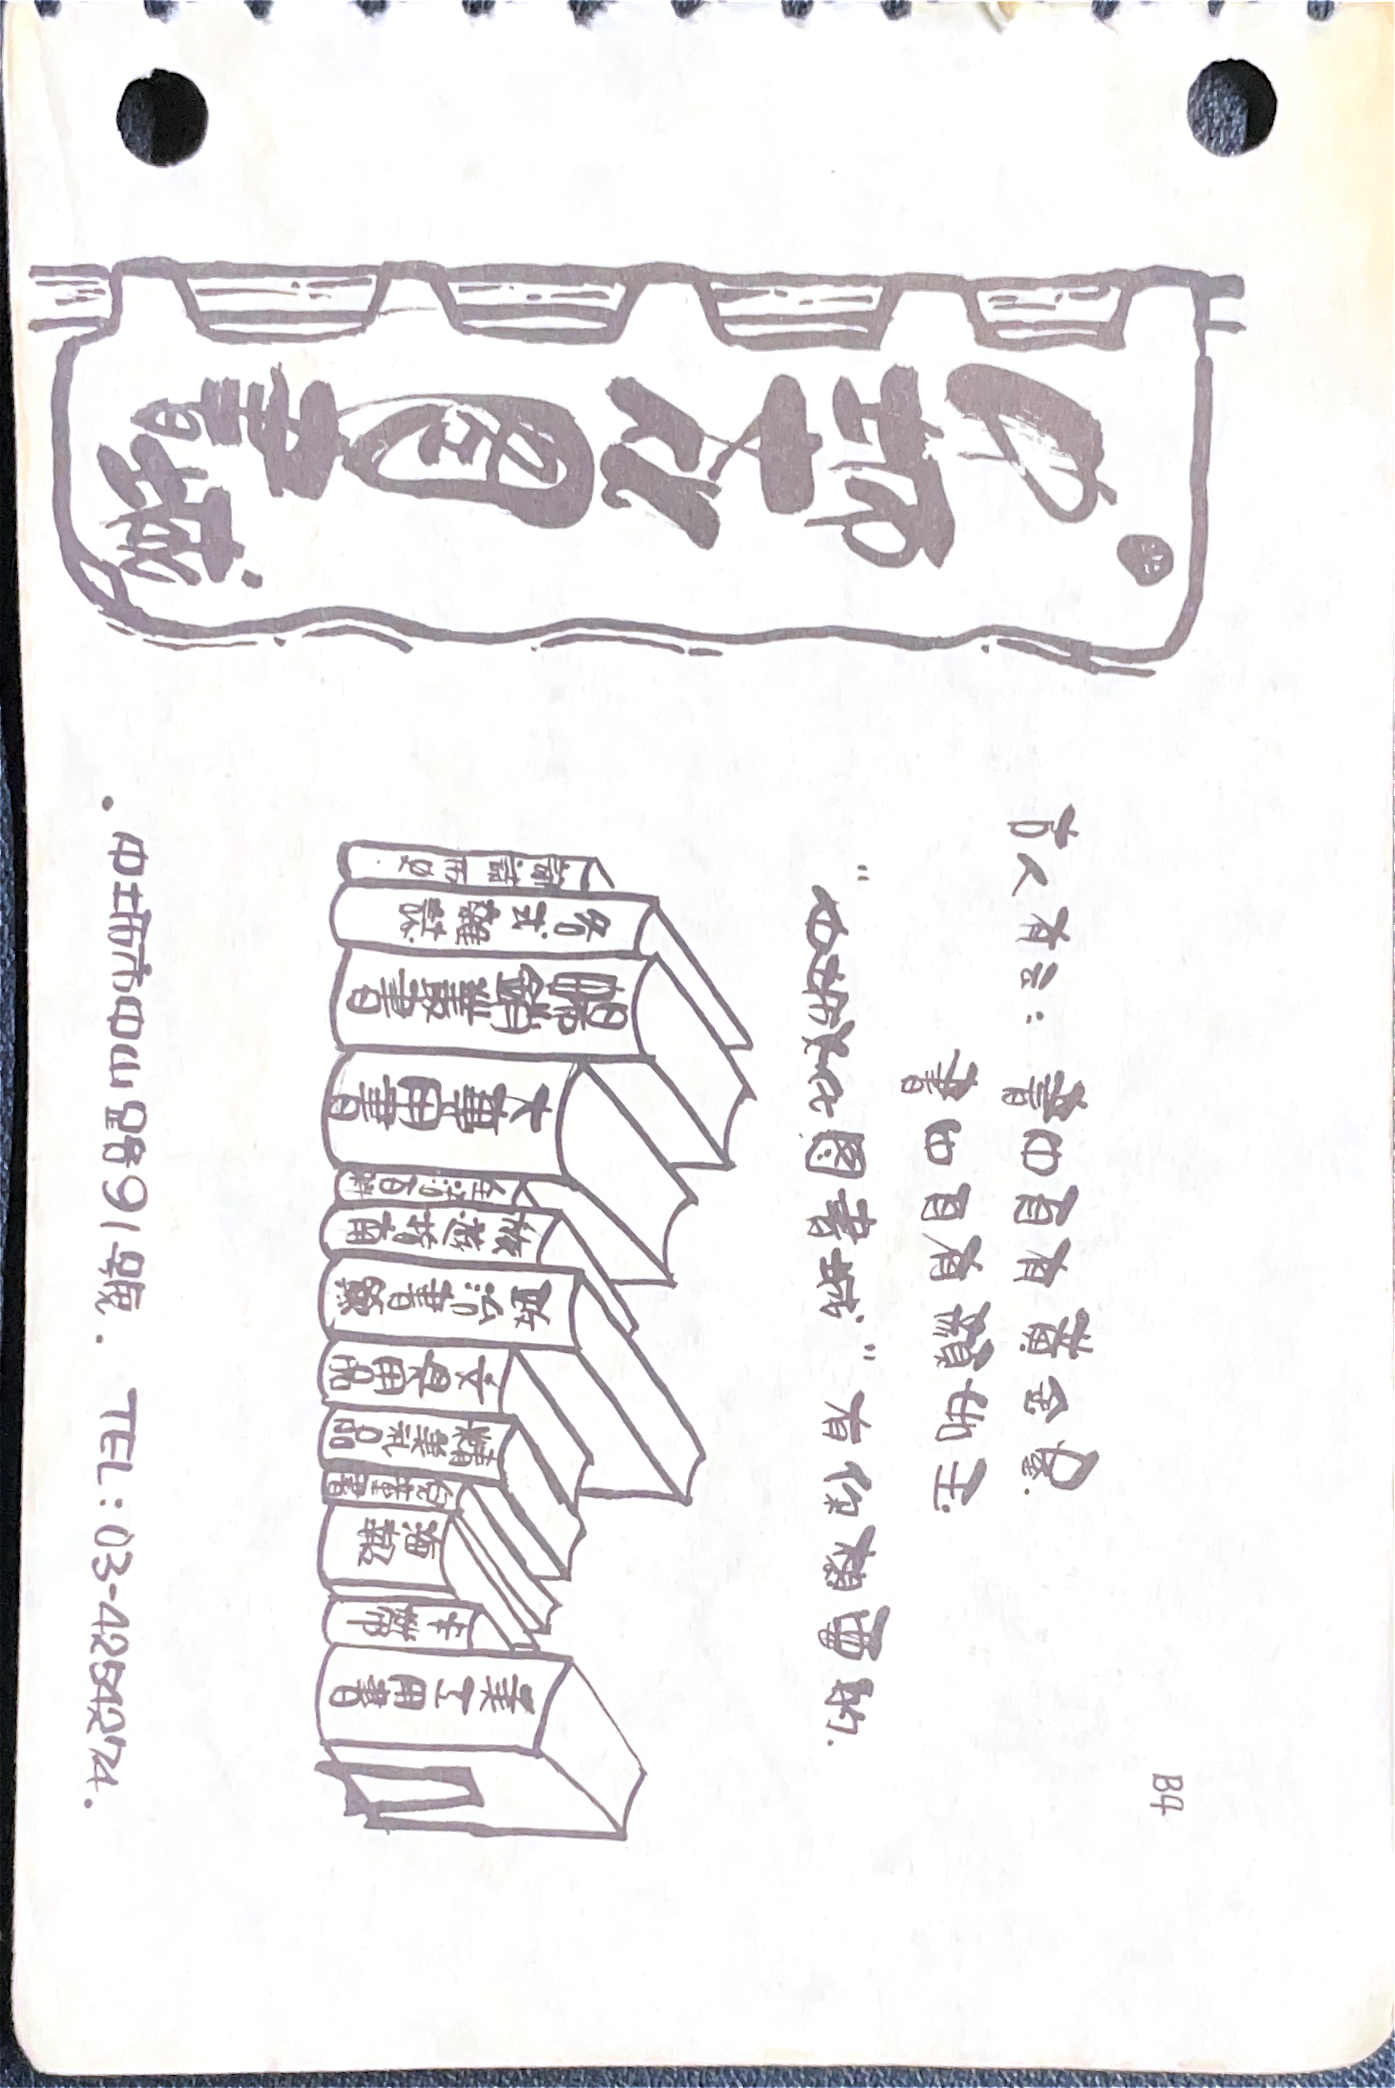 中坜文化图書城
B4
古人有云：書中自有黃金屋.
書中自有顏如玉.
"中坜文化图書城"有你想要的.
各式雜誌
暢銷叢書
大專用書
生活百科
旅遊指南
政治書籍
文具用品
精美礼品
兒童書
海報
卡帶
美工用書
. 中坜市中山路91號. TEL：03-4254274.